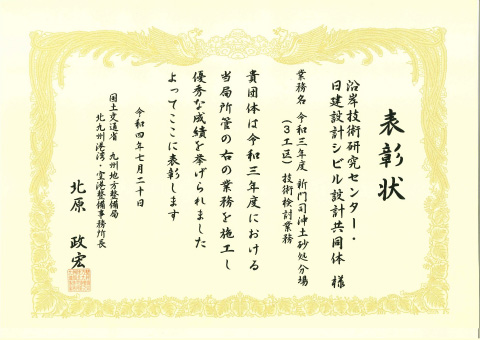 表彰状
沿岸技術研究センター・
日建設計シビル設計共同体 様
業務名 令和三年度 新門司沖土砂処分場
(3工区) 技術検討業務
貴団体は令和三年度における
当局所管の右の業務を施工し
優秀な成績を挙げられました
よってここに表彰します
令和四年七月二十日
国土交通省 九州地方整備局
北九州港湾・空港整備事務所長
北原 政宏